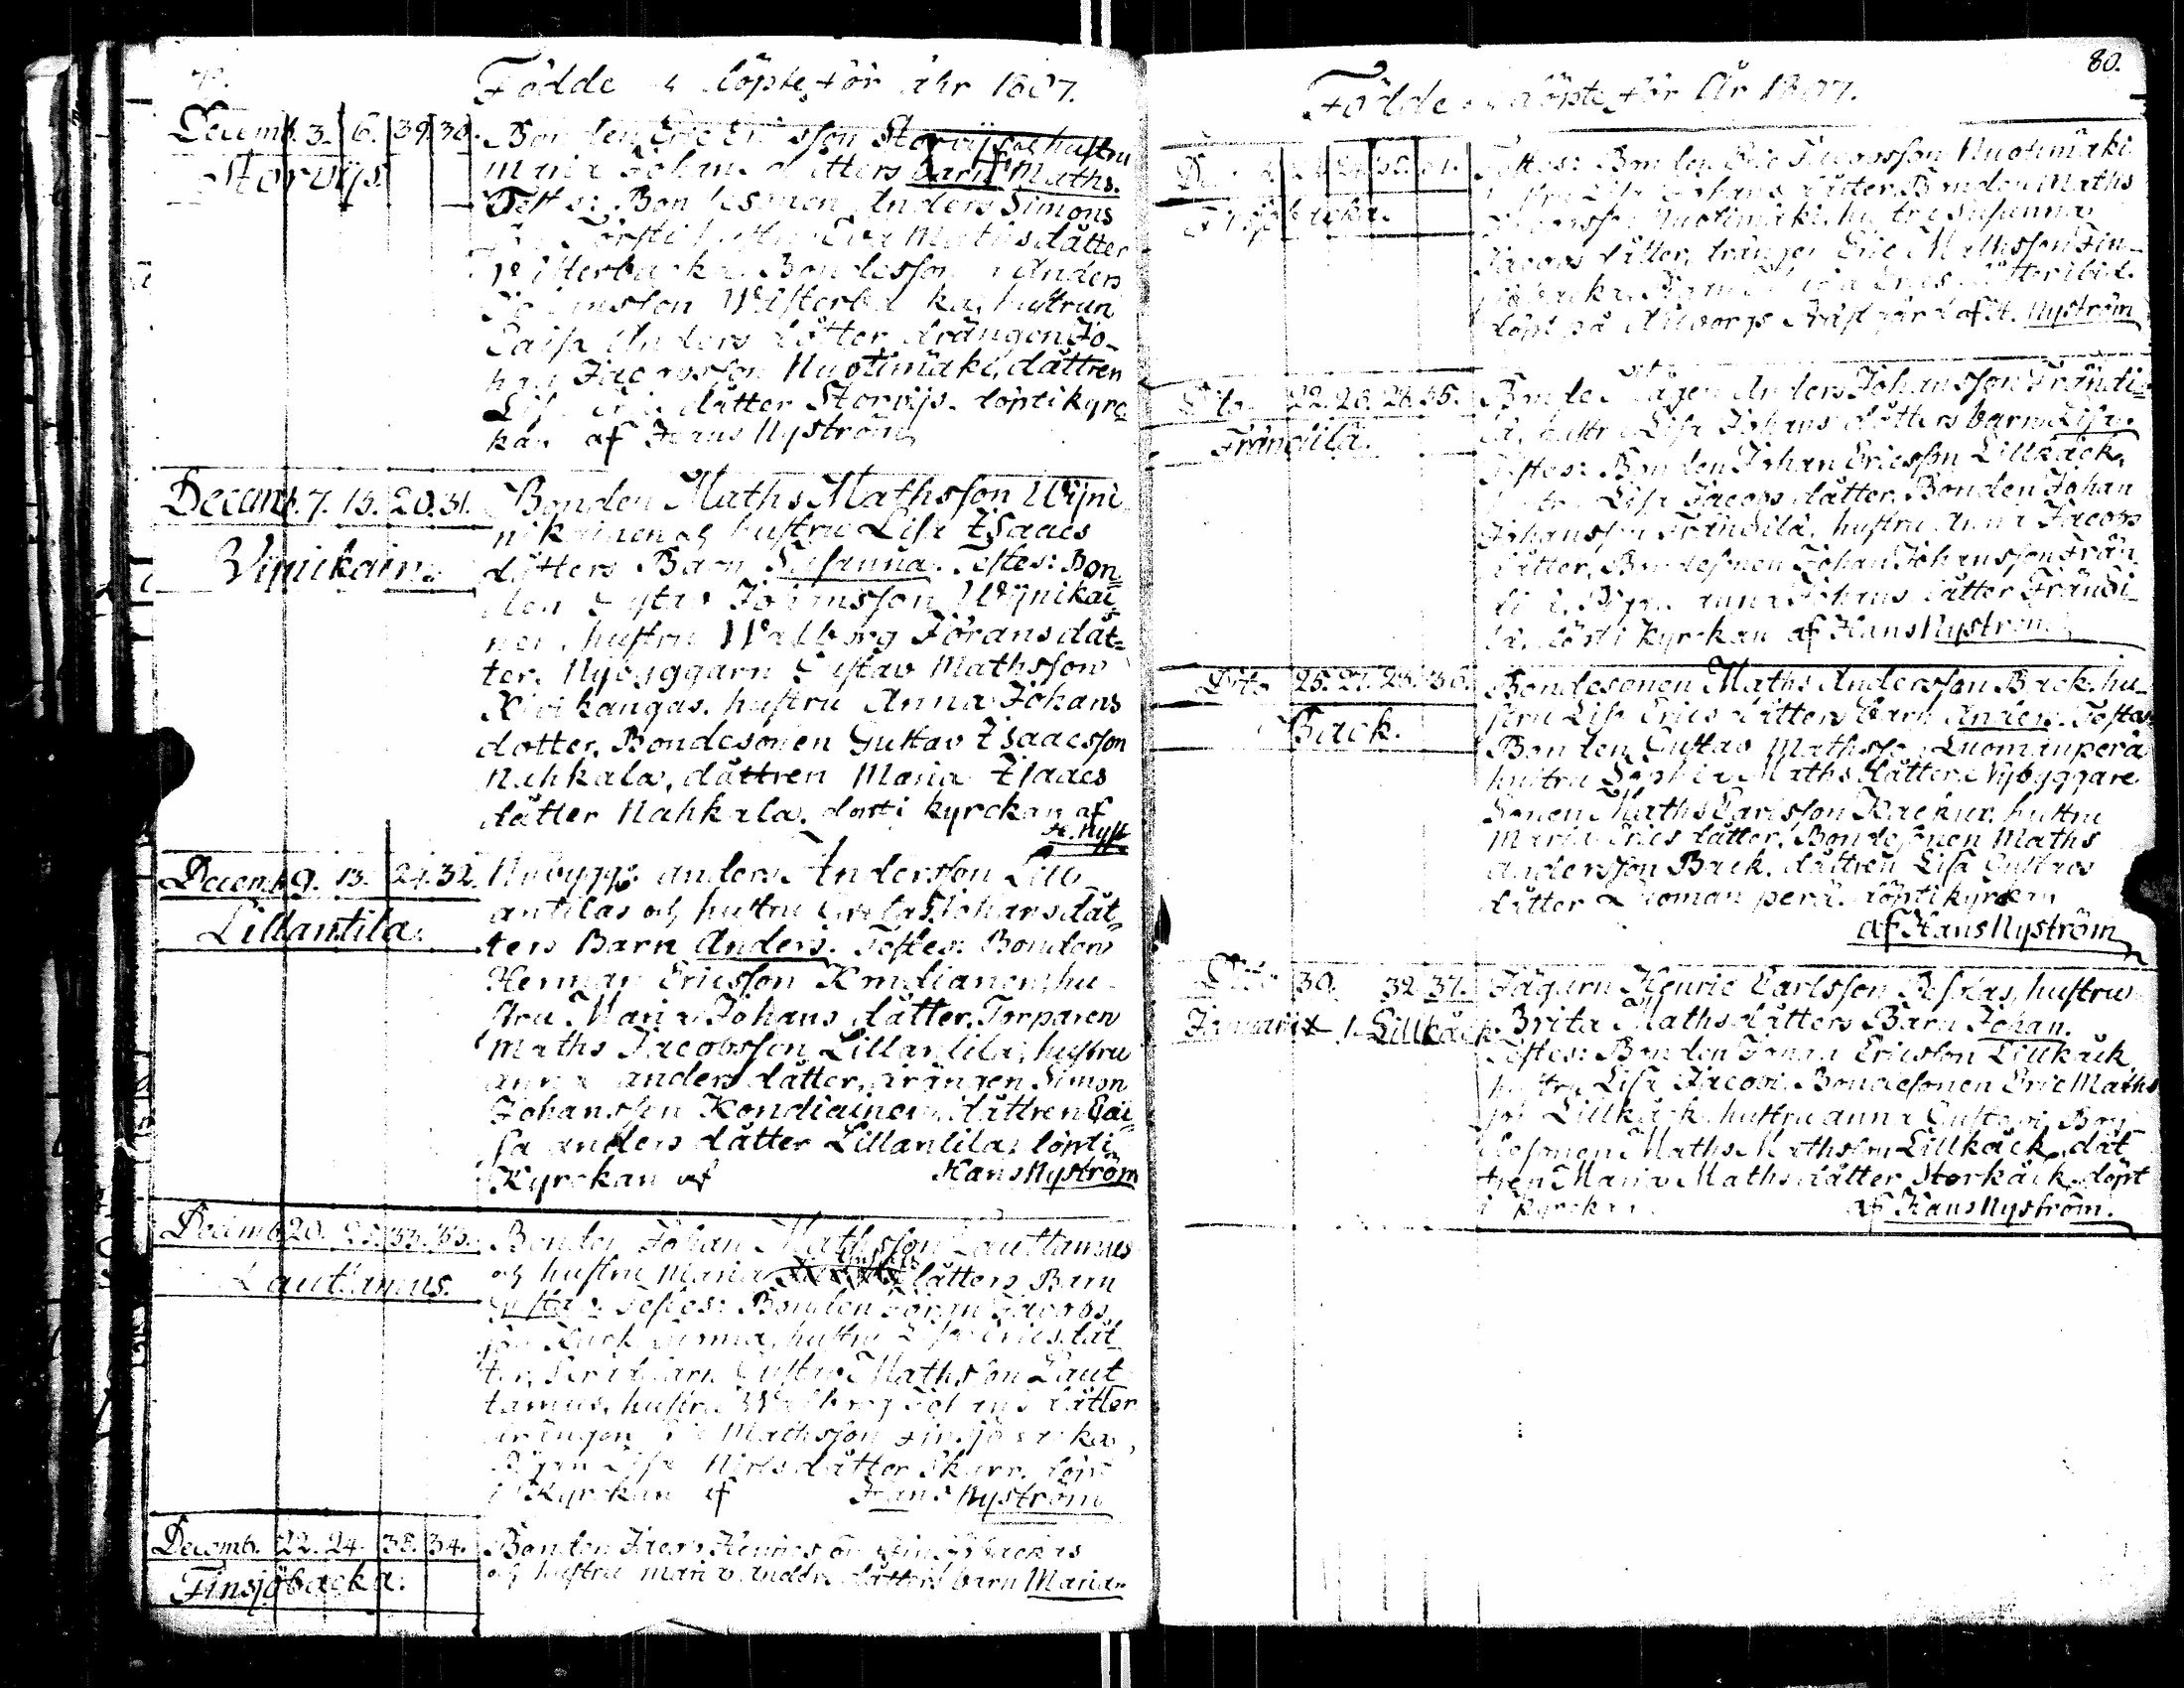 Födde & döpte för åhr 1807.
Decemb. 3. 6. 39. 30.
Storvijs
Bonden Eric Ericsson Storvijs och hustru
Maria Johans dåtters barn Maths.
Testes: Bondesonen Anders Simons
hustru Eva Mathsdåtter
Wisterbacka Bondesson Anders
Johansson Wisterbacka, hustrun
Caisa Anders dåtter drängen Jo-
han Jacobsson Nuotimäki, dåttren
Lisa Erics dåtter Storvijs. döpt i kyrc-
kan af Hans Nyström
Decemb. 7. 13. 20. 31.
Vijnikain.
Bonden Maths Mathsson Wijni
nikainen och hustru Lisa Isaacs
dåtters Barn Susanna. Testes: Bon=
den Gustav Johansson Wijnikai
nen, hustru Walborg Jörans dåt=
ter. Nybyggarn Gustav Mathsson
Kivikangas. hustru Anna Johans
dotter. Bondesonen Gustav Isaacsson
Nahkala, dåttren Maria Isaacs
dåtter Nahkala. döpt i kyrckan af
H. Nyst
Decemb. 9. 13. 24. 32.
Lillantila.
Nybygg: anders Andersson Lill
antilas och hustru Greta Johans dåt=
ters Barn Anders. Testes: Bonden
Herman Ericsson Kondianen, hu
stru Maria Johans dåtter. Torparen
Maths Jacobsson Lillantila, hustru
anna anders dåtter, drängen Simon
Johansson Kondiainen, dåttren Cai
sa anders dåtter Lillantila, döpt i
Kyrckan af Hans Nyström
Decemb. 20. 33. 33.
Lauttamus.
Bonden Johan Mathsson Lauttamus
och hustru Maria dåtters Barn
Gustav. Testes: Bonden Jöran Jacobs
hustru Lisa Erics dåt
ter, Gustav Mathsson Laut
tamus, hustru Walborg Johans dåtter
drängen Mathsson Finsjöbacka,
Pigan Lisa Nirsdåtter Skarr. döpt
i Kyrckan af Hans Nyström
Decemb. 22. 24. 38. 34.
Finsjöbacka.
Bonden Jacob Henricsson Finsjöbackas
och hustru maria anders dåtters barn Maria.
80.
Födde och döpte för År 1807.
Testes: Bonden Eric Jacobsson Nuotimäki
hustru Lisa Johans dåtter, Bonden Maths
Nuotimäki, hustru Susanna
Jacobs dåtter, drängen Eric Mathsson Fin-
sjöbacka, Pigan Erics dåtter ibid.
döpt på Prästgård af H. Nyström
Dito 22. 26. 28. 35.
Frändilä.
Anders Johansson Frändi=
lä, hustru Lisa Johans dåtters barn Lisa.
Testes: Bonden Johan Ericsson Lillkäck,
hustru Lisa Jacobs dåtter. Bonden Johan
Johansson Frändilä, hustru Anna Jacobs
dåtter, Bondesonen Johan Johansson Frän
dilä, Pigan anna Johans dåtter Frändi
lä, döpt i kyrckan af Hans Nyström
Dito 25. 27. 28. 36.
Back.
Bondesonen Maths Andersson Back. hu-
stru Lisa Erics dåtters barn Anders. Testes
Bonden Gustav Mathsson Luomanperä
hustru Sophia Maths dåtter. Nybyggare
Sonen Maths Carlsson Kackur, hustru
Maria Erics dåtter, Bondesonen Maths
andersson Back, dåttren Lisa Gustavs
dåtter Luomanperä. döpt i kyrckan
af Hans Nyström
Dito 30. 32. 37.
Januarii 1. Lillkäck.
Jägarn Henric Carlsson Peskas, hustru
Brita Maths dåtters Barn Johan.
Testes: Bonden Johan Ericsson Lillkäck
hustru Lisa Jacobi. Bondesonen Eric Maths
son Lillkäck, hustru anna Gustavi. Bon
desonen Maths Mathsson Lillkäck, dåt
tren Maria Maths dåtter Storkäck, döpt
i Kyrckan af Hans Nyström.